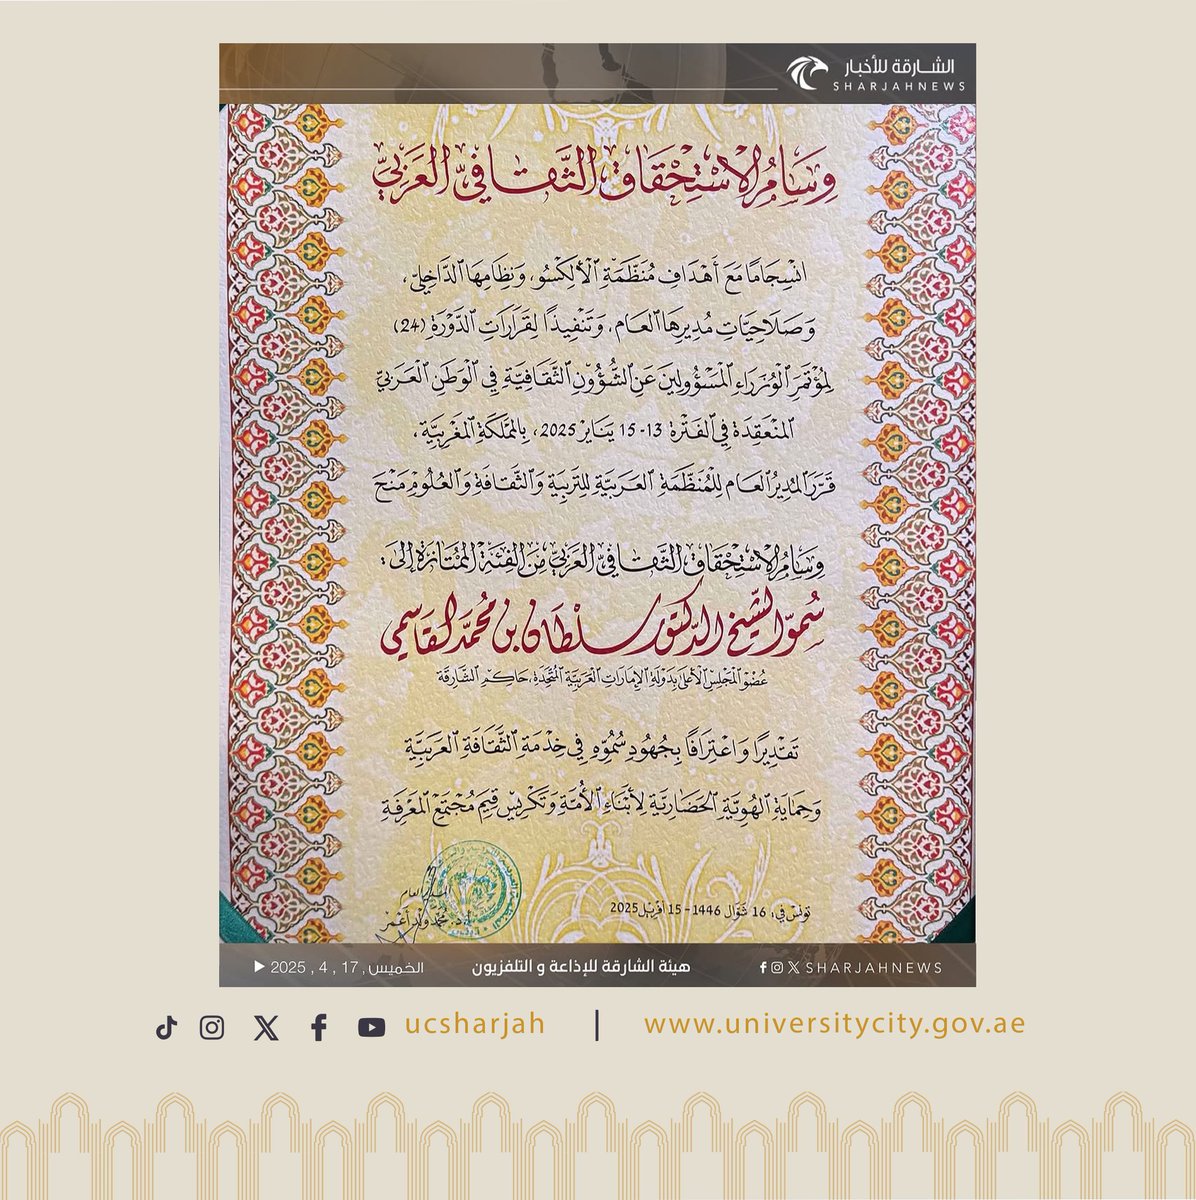 الشارقة للأخبار
SHARJAHNEWS
وِسَامُ الِاسْتِحْقَاقِ الثَّقَافِيِّ الْعَرَبِيِّ
انْسِجَامًا مَعَ أَهْدَافِ مُنَظَّمَةِ الْأَلِكْسُو، وَنِظَامِهَا الدَّاخِلِيِّ،
وَصَلَاحِيَّاتِ مُدِيرِهَا الْعَام، وَتَنْفِيذًا لِقَرَارَاتِ الدَّوْرَةِ (24)
لِمُؤْتَمَرِ الْوُزَرَاءِ الْمَسْؤُولِينَ عَنِ الشُّؤُونِ الثَّقَافِيَّةِ فِي الْوَطَنِ الْعَرَبِيِّ
الْمُنْعَقِدَةِ فِي الْفَتْرَةِ 13-15 يَنَايَرْ 2025، بِالْمَمْلَكَةِ الْمَغْرِبِيَّةِ،
قَرَّرَ الْمُدِيرُ الْعَام لِلْمُنَظَّمَةِ الْعَرَبِيَّةِ لِلتَّرْبِيَةِ وَالثَّقَافَةِ وَالْعُلُومِ مَنْحَ
وِسَامُ الِاسْتِحْقَاقِ الثَّقَافِيِّ الْعَرَبِيِّ مِنَ الْفِئَةِ الْمُمْتَازَةِ إِلَى:
سُمُوِّ الشَّيْخِ الدُّكْتُورِ سُلْطَان بْن مُحَمَّد الْقَاسِمِي
عُضْوِ الْمَجْلِسِ الْأَعْلَى بِدَوْلَةِ الْإِمَارَاتِ الْعَرَبِيَّةِ الْمُتَّحِدَةِ، حَاكِمِ الشَّارِقَةِ
تَقْدِيرًا وَاعْتِرَافًا بِجُهُودِ سُمُوِّهِ فِي خِدْمَةِ الثَّقَافَةِ الْعَرَبِيَّةِ
وَحِمَايَةِ الْهُوِيَّةِ الْحَضَارِيَّةِ لِأَبْنَاءِ الْأُمَّةِ وَتَكْرِيسِ قِيَمِ مُجْتَمَعِ الْمَعْرِفَةِ
تونس في: 16 شَوَّال 1446 - 15 أفريل 2025
المدير العام
أ.د. محمد ولد أعمر
SHARJAHNEWS
هيئة الشارقة للإذاعة و التلفزيون
الخميس, 17 , 4 , 2025
ucsharjah | www.universitycity.gov.ae